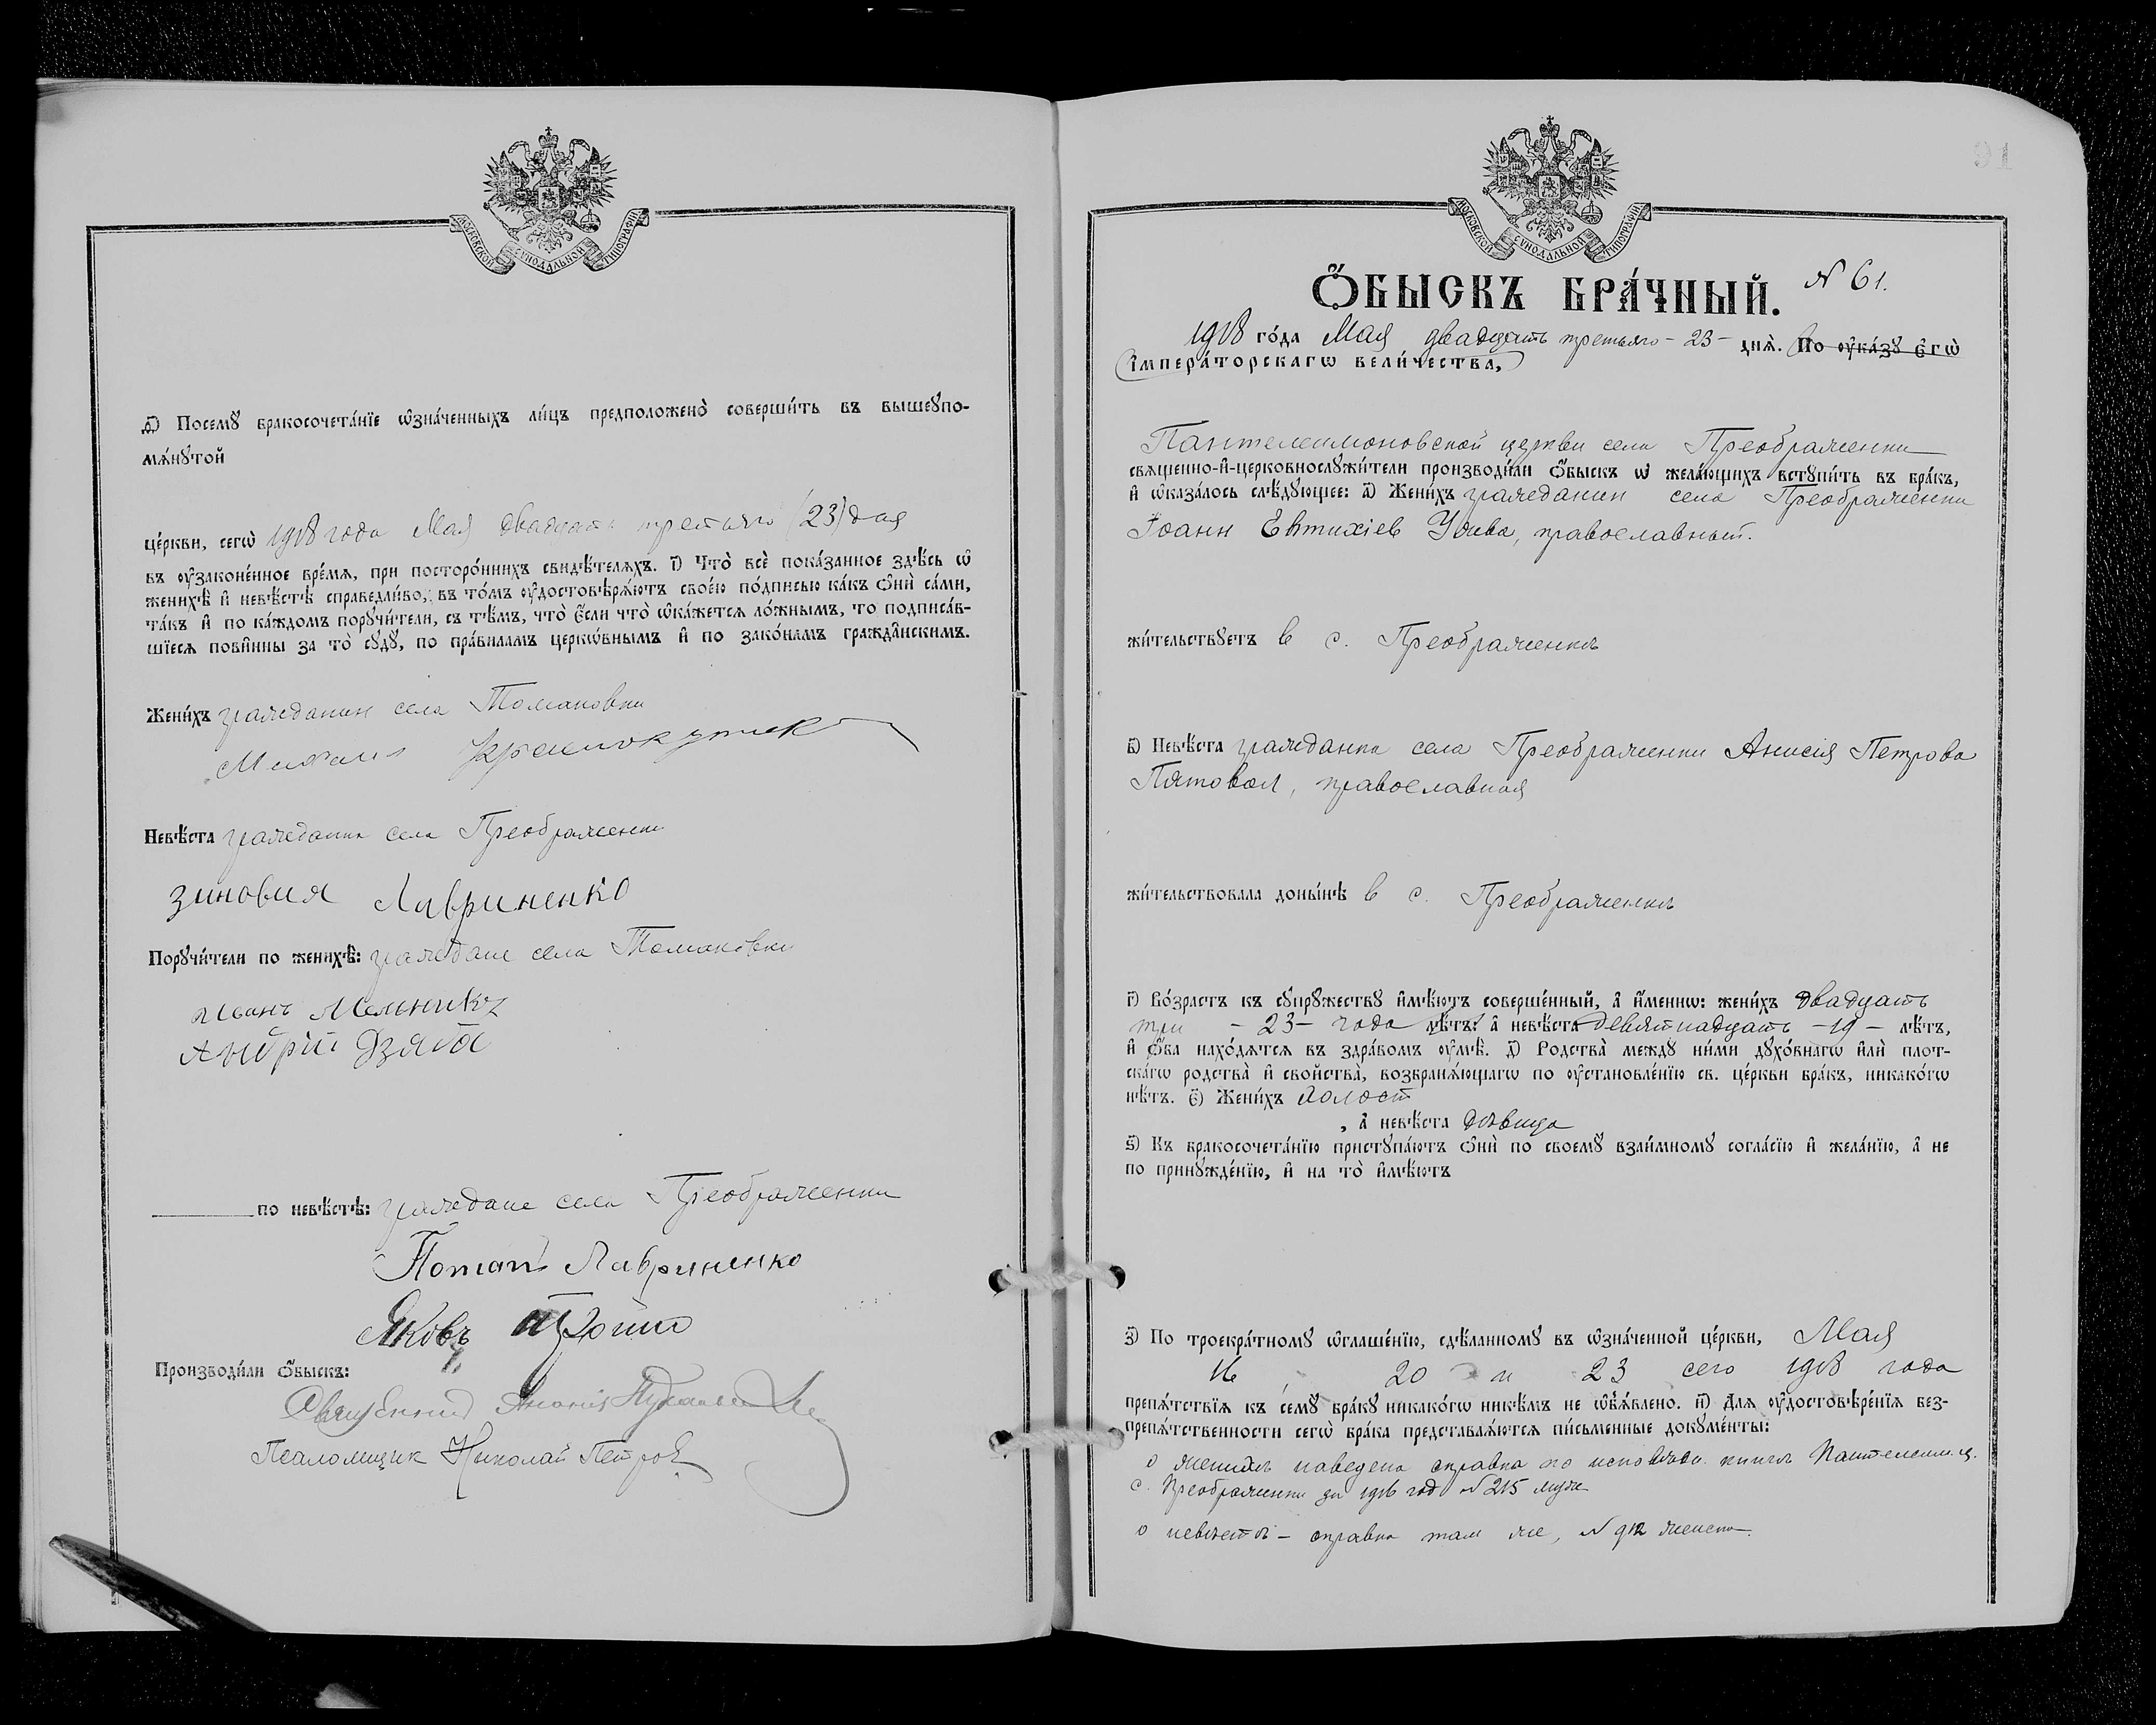 МОСКОВСКОЙ СѴНОДАЛЬНОЙ ТИПОГРАФІИ
д҃) Посемꙋ̀ бракосочета́нїе ѡ҆зна́ченныхъ ли́цъ предположено̀ соверши́ть въ вышеꙋпо-
мѧ́нꙋтой
це́ркви, сегѡ̀ 1918 года Мая двадцать третьяго (23) дня
въ ᲂу҆законе́нное вре́мѧ, при посторо́ннихъ свидѣ́телѧхъ. і҃) Что̀ всѐ пока́занное здѣ́сь ѡ҆
женихѣ̀ и҆ невѣ́стѣ справедли́во, въ то́мъ ᲂу҆достовѣрѧ́ютъ свое́ю по́дписью ка́къ ѻ҆нѝ са́ми,
та́къ и҆ по ка́ждомъ порꙋчи́тели, съ тѣ́мъ, что̀ є҆́сли что̀ ѡ҆ка́жетсѧ ло́жнымъ, то подписа́в-
шїесѧ пови́нны за то̀ сꙋдꙋ̀, по пра́виламъ церко́внымъ и҆ по зако́намъ гражда́нскимъ.
Жени́хъ гражданин села Томаковки
Михаил Краснокутск
Невѣ́ста гражданка села Преображенки
Зиновия Лавриненко
Порꙋчи́тели по женихѣ̀: граждане села Томаковки
Иванъ Мельникъ
Андрій Дзяба
по невѣ́стѣ: граждане села Преображенки
Потапъ Лавриненко
Яковъ
Производи́ли ѻ҆́быскъ:
Священник
Псаломщик Николай Петров
МОСКОВСКОЙ СѴНОДАЛЬНОЙ ТИПОГРАФІИ
Ѻ҆́БЫСКЪ БРА́ЧНЫЙ. № 61.
1918 го́да Мая двадцать третьяго - 23 - днѧ̀. По ᲂу҆ка́зꙋ є҆гѡ̀
і҆мпера́торскагѡ вели́чества,
Пантелеимоновской церкви села Преображенки
свѧще́нно-и҆-церковнослꙋжи́тели производи́ли ѻ҆́быскъ ѡ҆ жела́ющихъ встꙋпи́ть въ бра́къ,
и҆ ѡ҆каза́лось слѣ́дꙋющее: а҃) Жени́хъ гражданин села Преображенки
Іоанн Евтихіев Усива, православный.
жи́тельствꙋетъ в с. Преображенкѣ
в҃) Невѣ́ста гражданка села Преображенки Анисія Петрова
Пятовол, православная
жи́тельствовала доны́нѣ в с. Преображенкѣ
г҃) Во́зрастъ къ сꙋпрꙋ́жествꙋ и҆мѣ́ютъ соверше́нный, а҆ и҆́меннѡ: жени́хъ двадцать
три - 23 - года лѣ́тъ: а҆ невѣ́ста девятнадцать - 19 - лѣ́тъ,
и҆ ѻ҆́ба нахо́дѧтсѧ въ здра́вомъ ᲂу҆мѣ̀. д҃) Родства̀ междꙋ ни́ми дꙋхо́внагѡ и҆лѝ плот-
ска́гѡ родства̀ и҆ свойства̀, возбранѧ́ющагѡ по ᲂу҆становле́нїю св. це́ркви бра́къ, никако́гѡ
нѣ́тъ. є҃) Жени́хъ холост
, а҆ невѣ́ста дѣвица
ѕ҃) Къ бракосочета́нїю пристꙋпа́ютъ ѻ҆нѝ по своемꙋ̀ взаи́мномꙋ согла́сїю и҆ жела́нїю, а҆ не
по принꙋжде́нїю, и҆ на то̀ и҆мѣ́ютъ
з҃) По троекра́тномꙋ ѡ҆глаше́нїю, сдѣ́ланномꙋ въ ѡ҆зна́ченной це́ркви, Мая
16, 20 и 23 сего 1918 года
препѧ́тствїѧ къ семꙋ̀ бра́кꙋ никако́гѡ никѣ́мъ не ѡ҆б̾ѧ́влено. и҃) Длѧ ᲂу҆достовѣре́нїѧ без-
препѧ́тственности сегѡ̀ бра́ка представлѧ́ютсѧ пи́сьменные докꙋме́нты:
о женихѣ наведена справка по исповѣдн. книгѣ Пантелеим. ц.
с. Преображенки за 1916 год № 215 муж.
о невѣстѣ - справка там же, № 912 женска